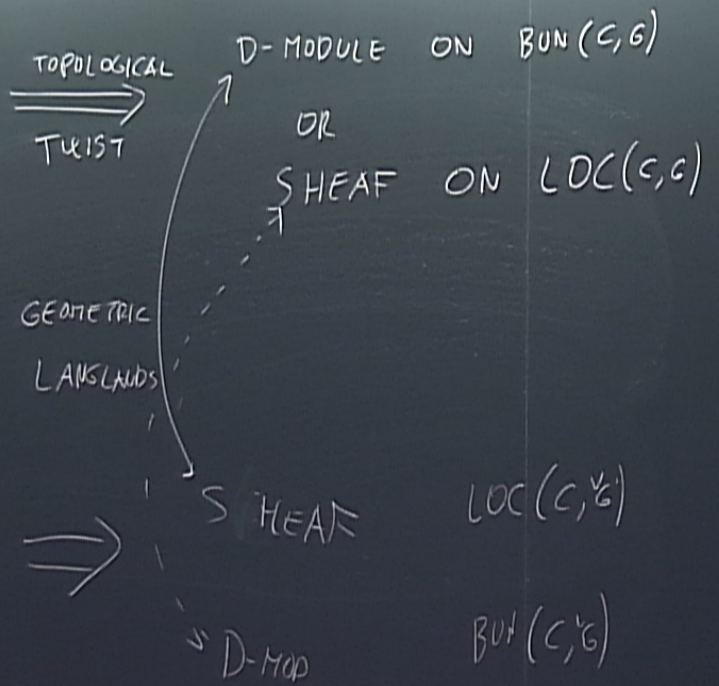 TOPOLOGICAL
TWIST
D-MODULE ON BUN(C,G)
OR
SHEAF ON LOC(C,G)
GEOMETRIC
LANGLANDS
SHEAF LOC(C,ᛌG)
D-MOD BUN(C,ᛌG)